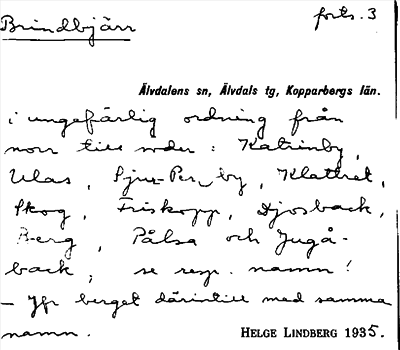 Brindbjärr forts. 3
Älvdalens sn, Älvdals tg, Kopparbergs län.
i ungefärlig ordning från
norr till söder: Katrinby,
Ulas, Sjur-Pers by, Klattret,
Skog, Friskopp, Djosback,
Berg, Pålsa och Jugå-
back, se resp. namn!
– Jfr berget därintill med samma
namn. HELGE LINDBERG 1935.